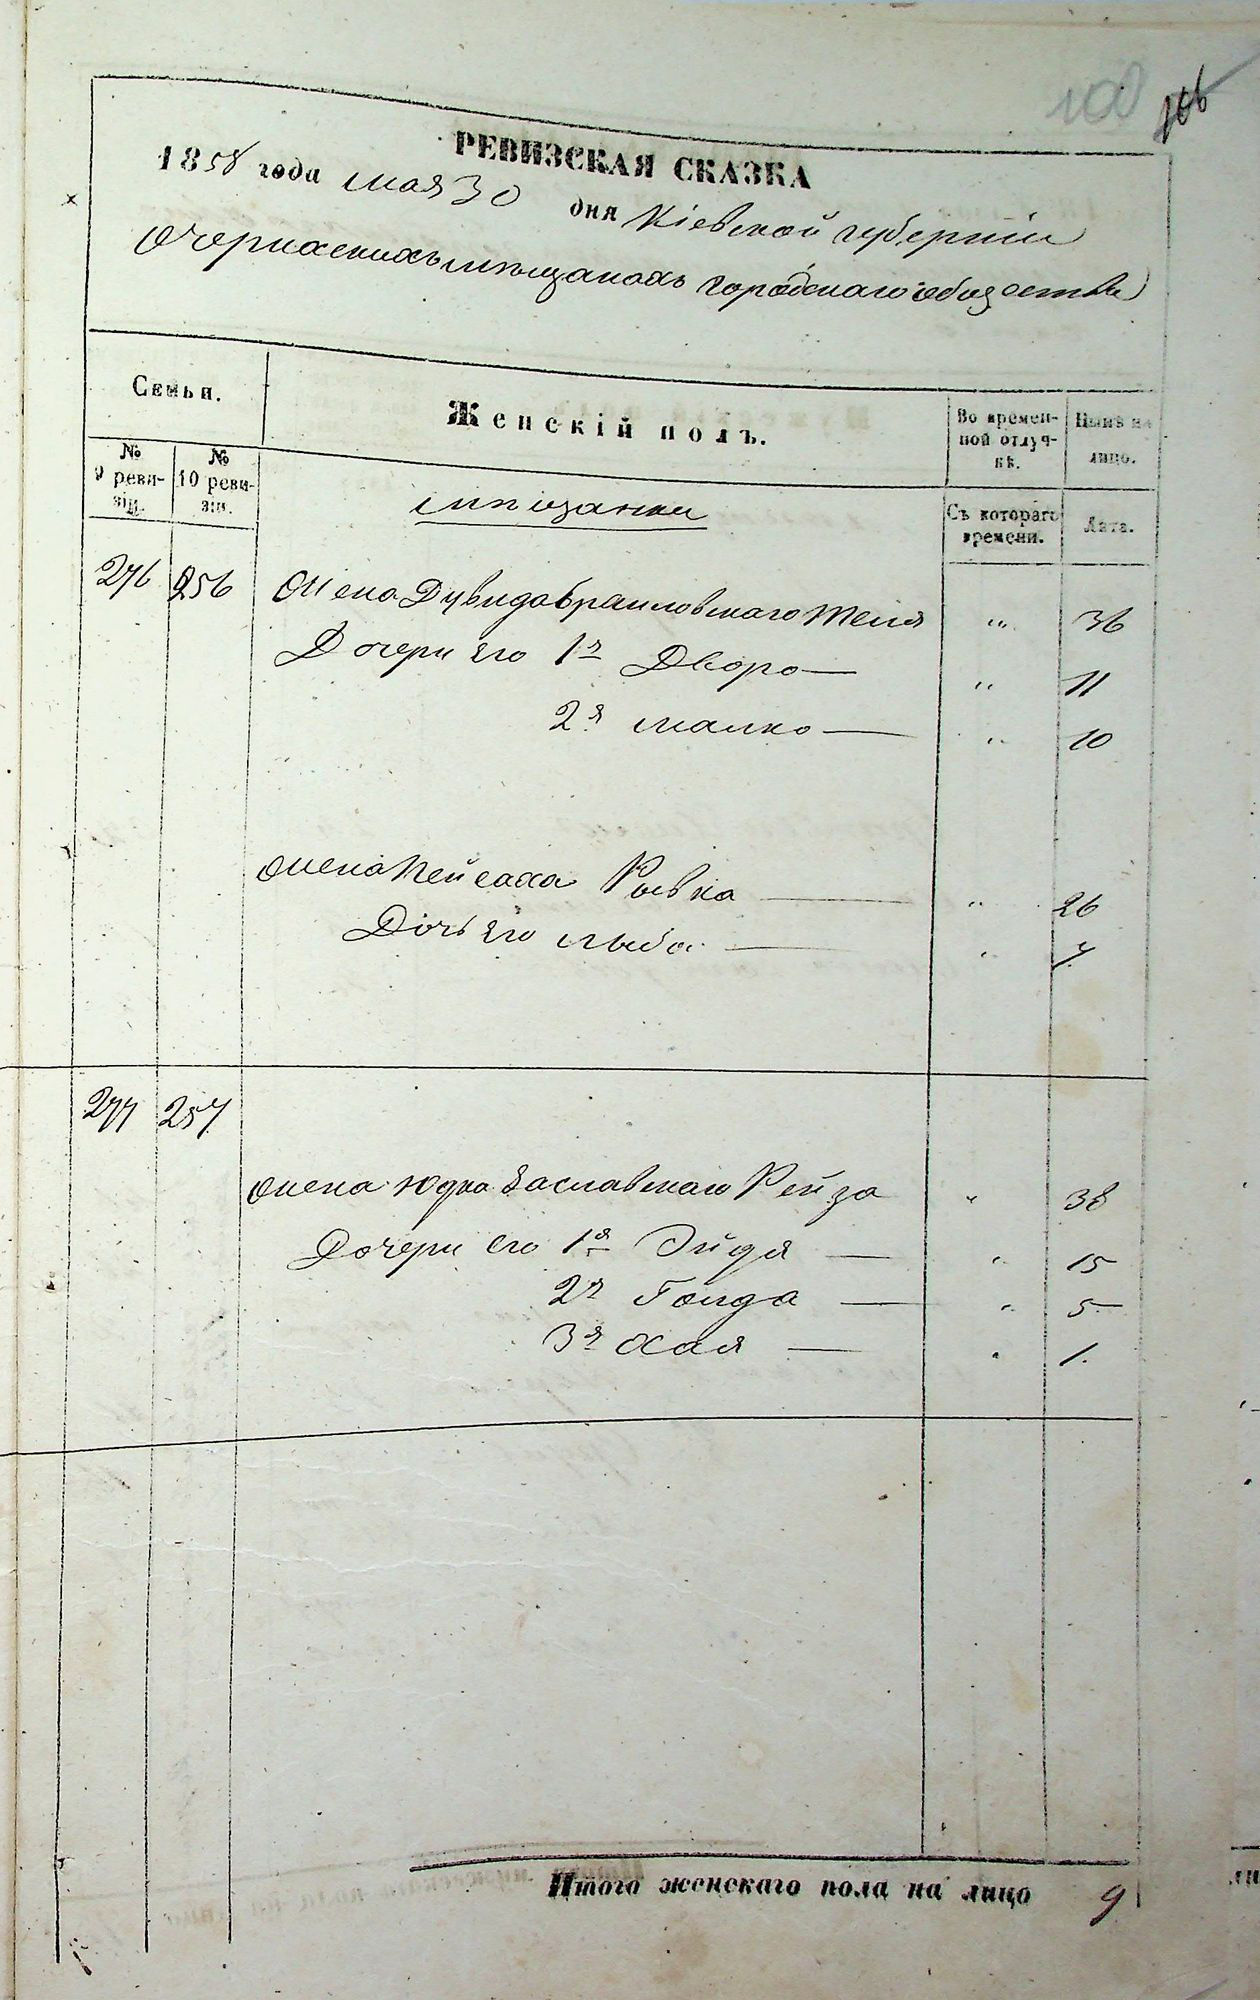 106
РЕВИЗСКАЯ СКАЗКА
1858 года мая 30 дня Кіевской губерніи
О черкаскихъ мѣщанахъ городскаго общества
Семьи.
Женскій полъ.
Во времен-
ной отлуч-
кѣ.
Нынѣ на
лицо.
№
9 реви-
зіи.
№
10 реви-
зіи.
мѣщанки
Съ котораго
времени.
Лѣта.
276 256 Жена Дувида Враиловскаго " 36
Дочери его 1я Двора — " 11
2я Малка — " 10
Жена Пейсаха Рывка — " 26
Дочь его — " 7
277 257
Жена Юдка Заславскаго Рейза " 38
Дочери его 1я Эйдя — " 15
2я Голда — " 5
3я Хая — " 1
Итого женскаго пола на лицо 9